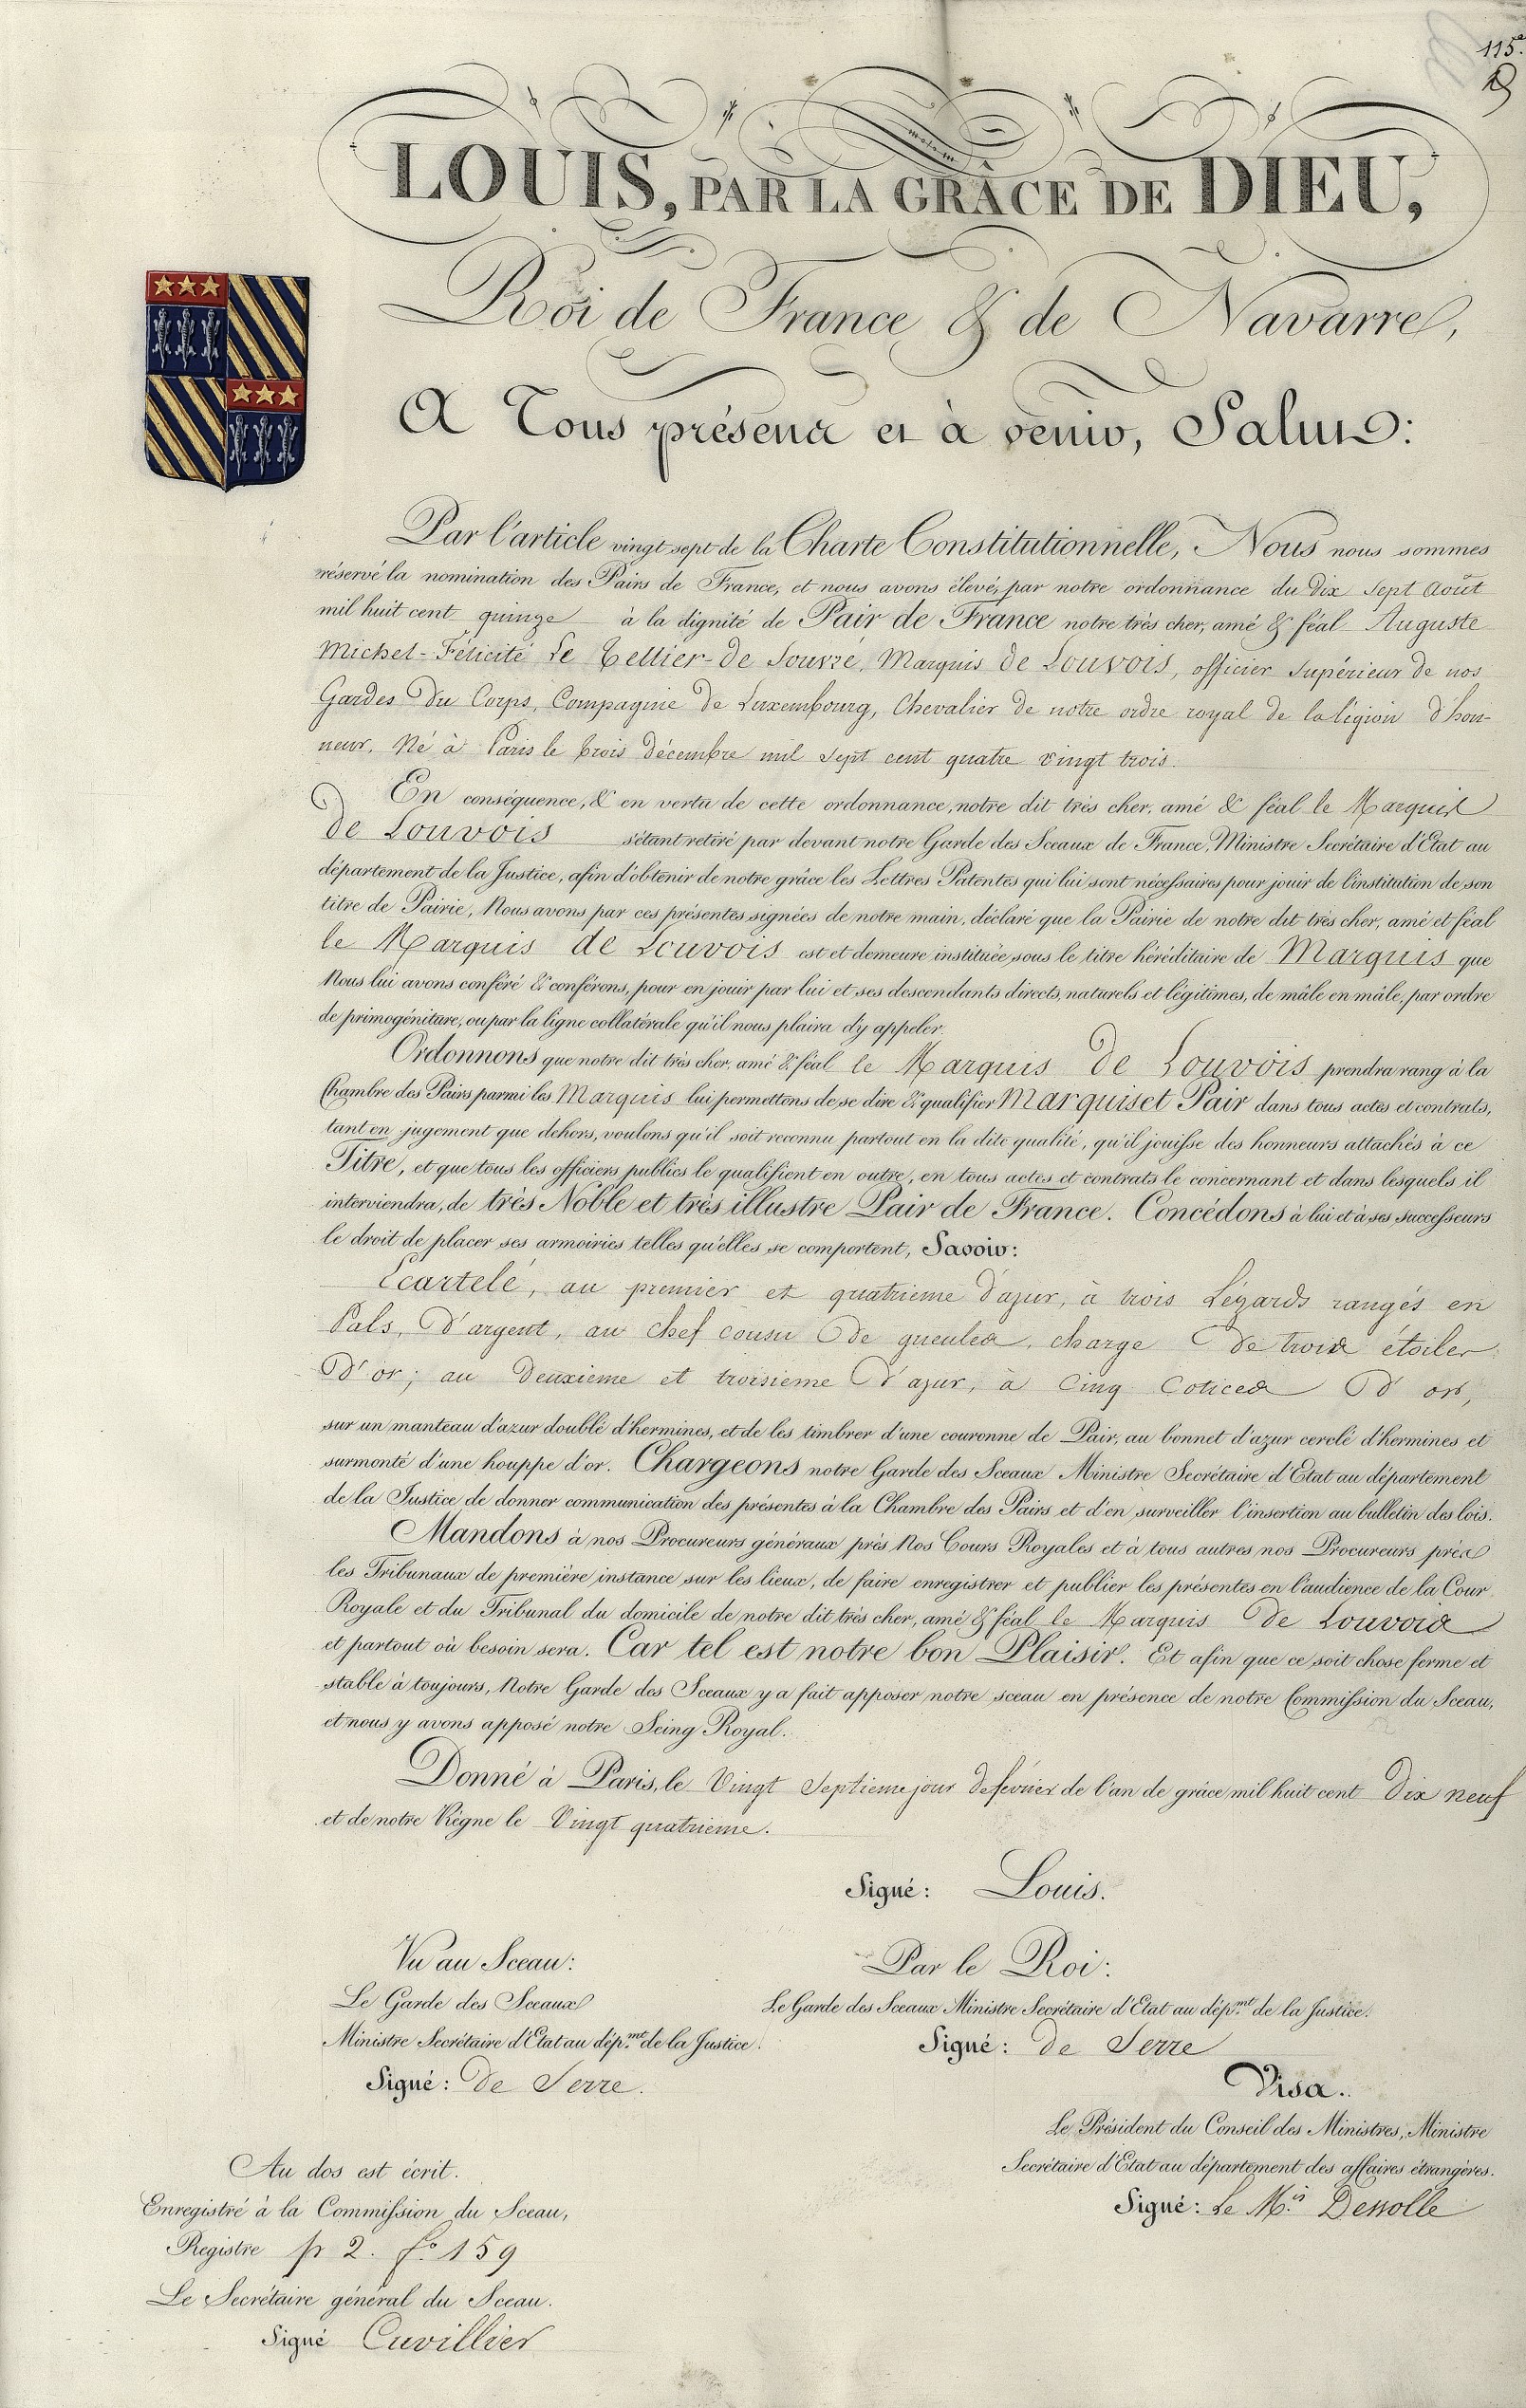 115e
LOUIS, PAR LA GRÂCE DE DIEU,
Roi de France & de Navarre,
A Tous présens et à venir, Salut:
Par l'article vingt sept de la Charte Constitutionnelle, Nous nous sommes
réservé la nomination des Pairs de France, et nous avons élevé, par notre ordonnance du Dix Sept Août
mil huit cent quinze à la dignité de Pair de France notre très cher, amé & féal Auguste
Michel-Félicité Le Tellier-de Souvré, Marquis de Louvois, officier Supérieur de nos
Gardes Du Corps, Compagnie de Luxembourg, Chevalier de notre ordre royal de la légion d'hon-
neur, Né à Paris le trois décembre mil sept cent quatre vingt trois.
En conséquence, & en vertu de cette ordonnance, notre dit très cher, amé & féal le Marquis
de Louvois s'étant retiré par devant notre Garde des Sceaux de France, Ministre Secrétaire d'Etat au
département de la Justice, afin d'obtenir de notre grâce les Lettres Patentes qui lui sont nécessaires pour jouir de l'institution de son
titre de Pairie, Nous avons par ces présentes signées de notre main, déclaré que la Pairie de notre dit très cher, amé et féal
le Marquis de Louvois est et demeure instituée sous le titre héréditaire de Marquis que
Nous lui avons conféré & conférons, pour en jouir par lui et ses descendants directs, naturels et légitimes, de mâle en mâle, par ordre
de primogéniture, ou par la ligne collatérale qu'il nous plaira d'y appeler.
Ordonnons que notre dit très cher, amé & féal le Marquis de Louvois prendra rang à la
Chambre des Pairs parmi les Marquis lui permettons de se dire & qualifier Marquis et Pair dans tous actes et contrats,
tant en jugement que dehors, voulons qu'il soit reconnu partout en la dite qualité, qu'il jouisse des honneurs attachés à ce
Titre, et que tous les officiers publics le qualifient en outre, en tous actes et contrats le concernant et dans lesquels il
interviendra, de très Noble et très illustre Pair de France. Concédons à lui et à ses successeurs
le droit de placer ses armoiries telles qu'elles se comportent, Savoir:
Ecartelé, au premier et quatrieme d'azur, à trois Lézards rangés en
Pals, D'argent, au chef cousu De gueules, charge De trois étoiles
D'or; au Deuxieme et troisieme D'azur, à Cinq Cotices D'or,
sur un manteau d'azur doublé d'hermines, et de les timbrer d'une couronne de Pair, au bonnet d'azur cerclé d'hermines et
surmonté d'une houppe d'or. Chargeons notre Garde des Sceaux Ministre Secrétaire d'Etat au département
de la Justice de donner communication des présentes à la Chambre des Pairs et d'en surveiller l'insertion au bulletin des lois.
Mandons à nos Procureurs généraux près Nos Cours Royales et à tous autres nos Procureurs près
les Tribunaux de première instance sur les lieux, de faire enregistrer et publier les présentes en l'audience de la Cour
Royale et du Tribunal du domicile de notre dit très cher, amé & féal le Marquis De Louvois
et partout où besoin sera. Car tel est notre bon Plaisir. Et afin que ce soit chose ferme et
stable à toujours, Notre Garde des Sceaux y a fait apposer notre sceau en présence de notre Commission du Sceau,
et nous y avons apposé notre Seing Royal.
Donné à Paris, le Vingt Septieme jour de février de l'an de grâce mil huit cent Dix neuf
et de notre Règne le Vingt quatrieme.
Signé: Louis.
Vu au Sceau:
Le Garde des Sceaux
Ministre Secrétaire d'Etat au dép.mt de la Justice.
Signé: De Serre.
Par le Roi:
Le Garde des Sceaux Ministre Secrétaire d'Etat au dép.mt de la Justice.
Signé: De Serre
Visa.
Le Président du Conseil des Ministres, Ministre
Secrétaire d'Etat au département des affaires étrangères.
Signé: Le M.is Dessolle
Au dos est écrit.
Enregistré à la Commission du Sceau,
Registre pr 2. f.o 159
Le Secrétaire général du Sceau.
Signé Cuvillier